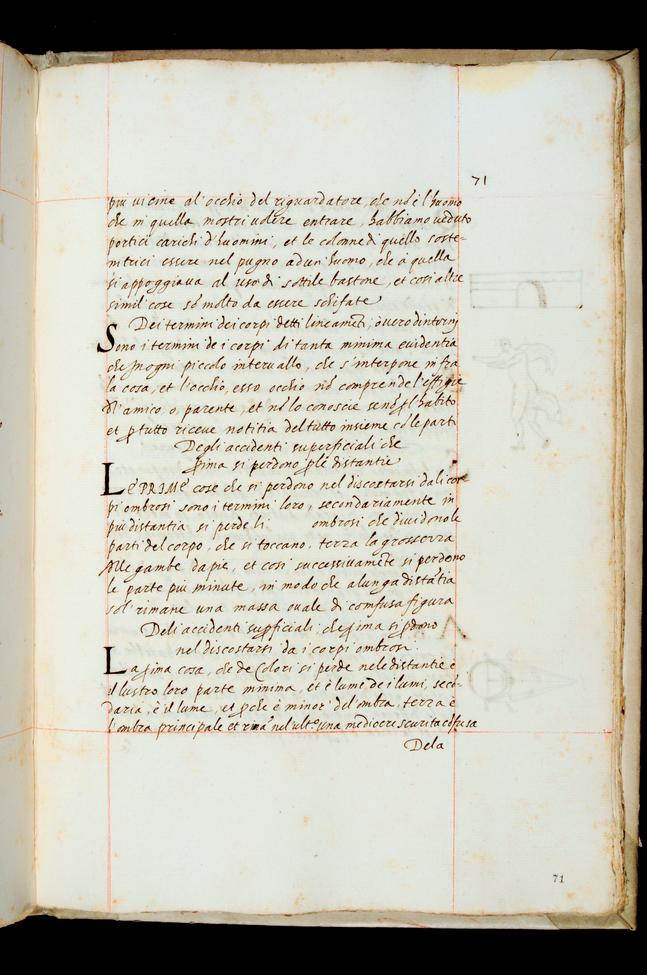 71
piu vicine al'occhio del riguardatore, che nõ è l'huomo
che in quella mostri volere entrare, habbiamo veduto
portici carichi d'huomini, et le colonne di quello soste-
nitrici essere nel pugno ad un huomo, che à quella
si appoggiava al uso di sottile bastone, et cosi altre
simil cose sõ molto da essere schifate
Dei termini dei corpi detti lineamẽti, òvero dintorni
Sono i termini de i corpi di tanta minima evidentia
che ĩ ogni piccolo intervallo, che s'interpone infra
la cosa, et l'occhio, esso occhio nõ comprende l'effigie
dl'amico, o, parente, et nõ lo conosce senõ ꝑ l'habito
et ꝑ tutto riceve notitia del tutto insieme cõ le parti
Degli accidenti superficiali che
prima si perdono ꝑ le distantie
LE PRIME cose che si perdono nel discostarsi da li cor
pi ombrosi sono i termini loro, secondariamente in
piu distantia si perde li ombrosi che dividono le
parti del corpo, che si toccano, terza la grossezza
dlle gambe da pie, et cosi successivamẽte si perdono
le parte piu minute, in modo che a lunga distãtia
sol' rimane una massa ovale di comfusa figura
Deli accidenti suꝑficiali che prima si ꝑdono
nel discostarsi da i corpi ombrosi.
La prima cosa, che de Colori si perde nele distantie è
il lustro loro parte minima, et è lume de i lumi, secõ-
daria, è il lume, et ꝑche è minor del'ombra, terza è
l'ombra principale et rimã nel ult.º una mediocre scurità cõfusa
Dela
71